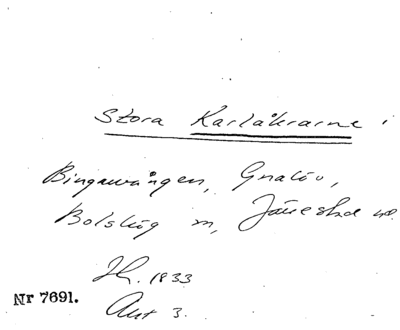 Stora Karlåkrarne i
Bingavången, Gnalöv,
Bolshög m, Järrestad
1833
Nr 7691.
Akt 3.